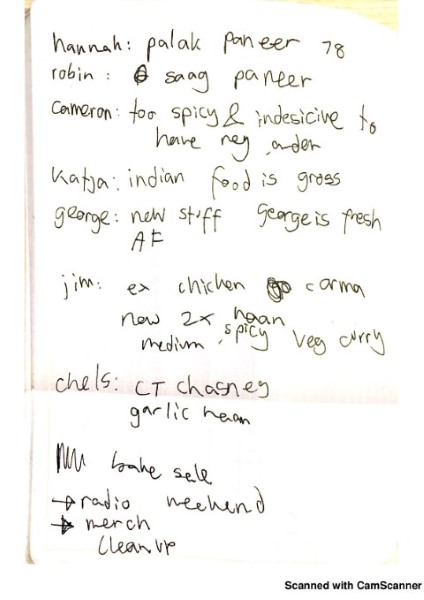 hannah: palak paneer 78
robin: saag paneer
Cameron: too spicy & indesicive to
have reg order
Katja: indian food is gross
george: new stuff George is fresh
AF
jim: ex chicken carma
new 2x naan
medium spicy veg curry
chels: CT
garlic naan
bake sell
→ radio weekend
→ merch
clean up
Scanned with CamScanner